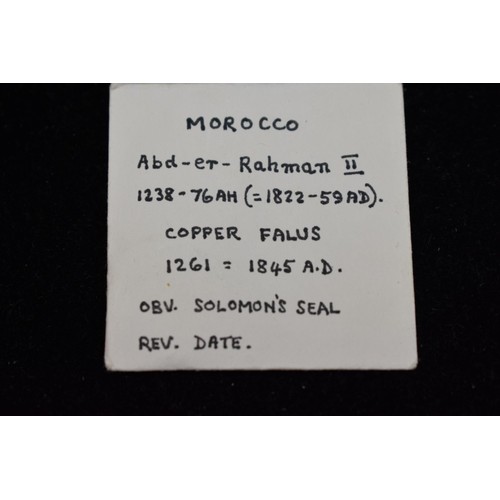 MOROCCO
Abd-er-Rahman II
1238-76AH (=1822-59AD).
COPPER FALUS
1261 = 1845 A.D.
OBV. SOLOMON'S SEAL
REV. DATE.